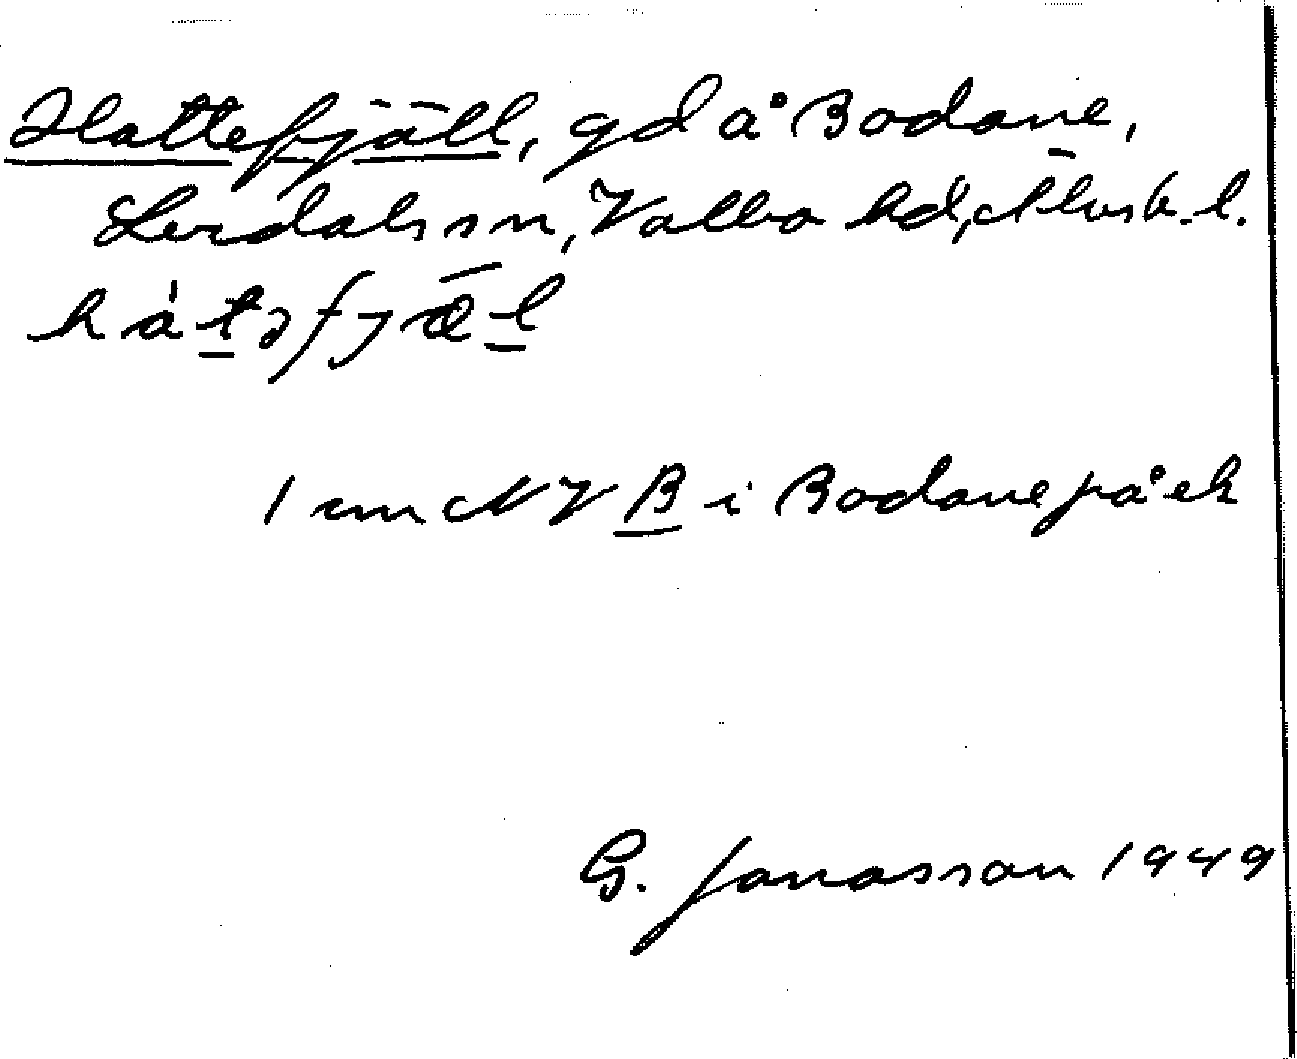 Hattefjäll, gd å Bodane,
Lerdals sn, Valbo hd, Älvsb. l.
hàtəfjæl
1 cm NV B i Bodane på ek
G. Jonasson 1949